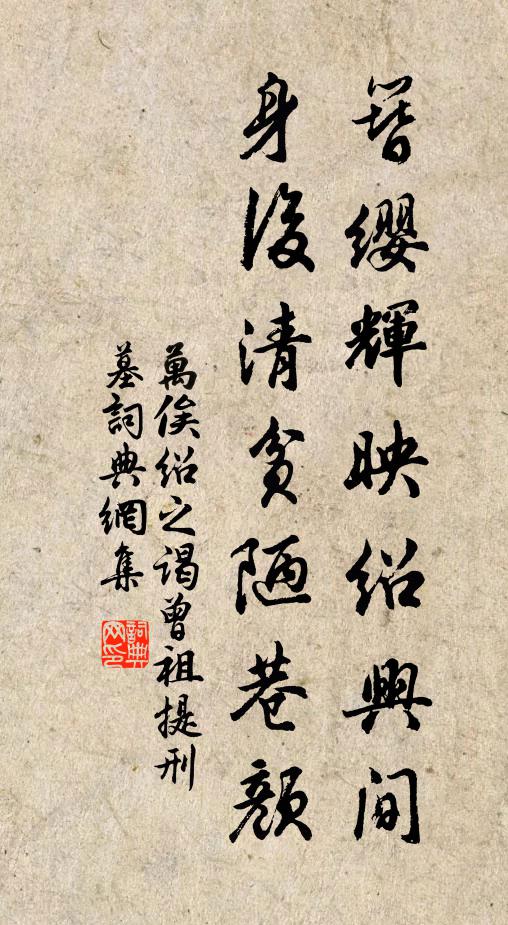 簪纓輝映紹興間
身後清貧陋巷顏
萬俟紹之謁曾祖提刑
墓詞典網集
詞典网印